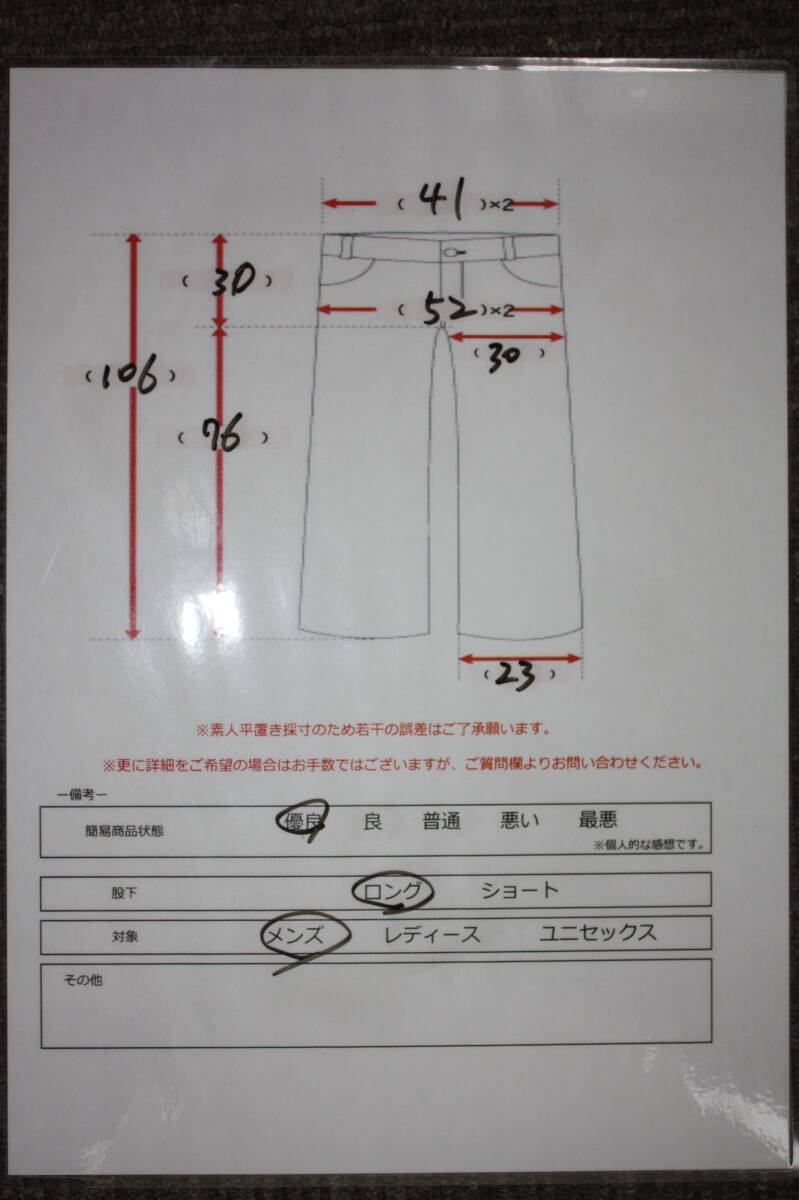 ( 41 )×2
( 30 )
( 52 )×2
( 30 )
( 106 )
( 76 )
( 23 )
※素人平置き採寸のため若干の誤差はご了承願います。
※更に詳細をご希望の場合はお手数ではございますが、ご質問欄よりお問い合わせください。
ー備考ー
簡易商品状態 優良 良 普通 悪い 最悪
※個人的な感想です。
股下 ロング ショート
対象 メンズ レディース ユニセックス
その他